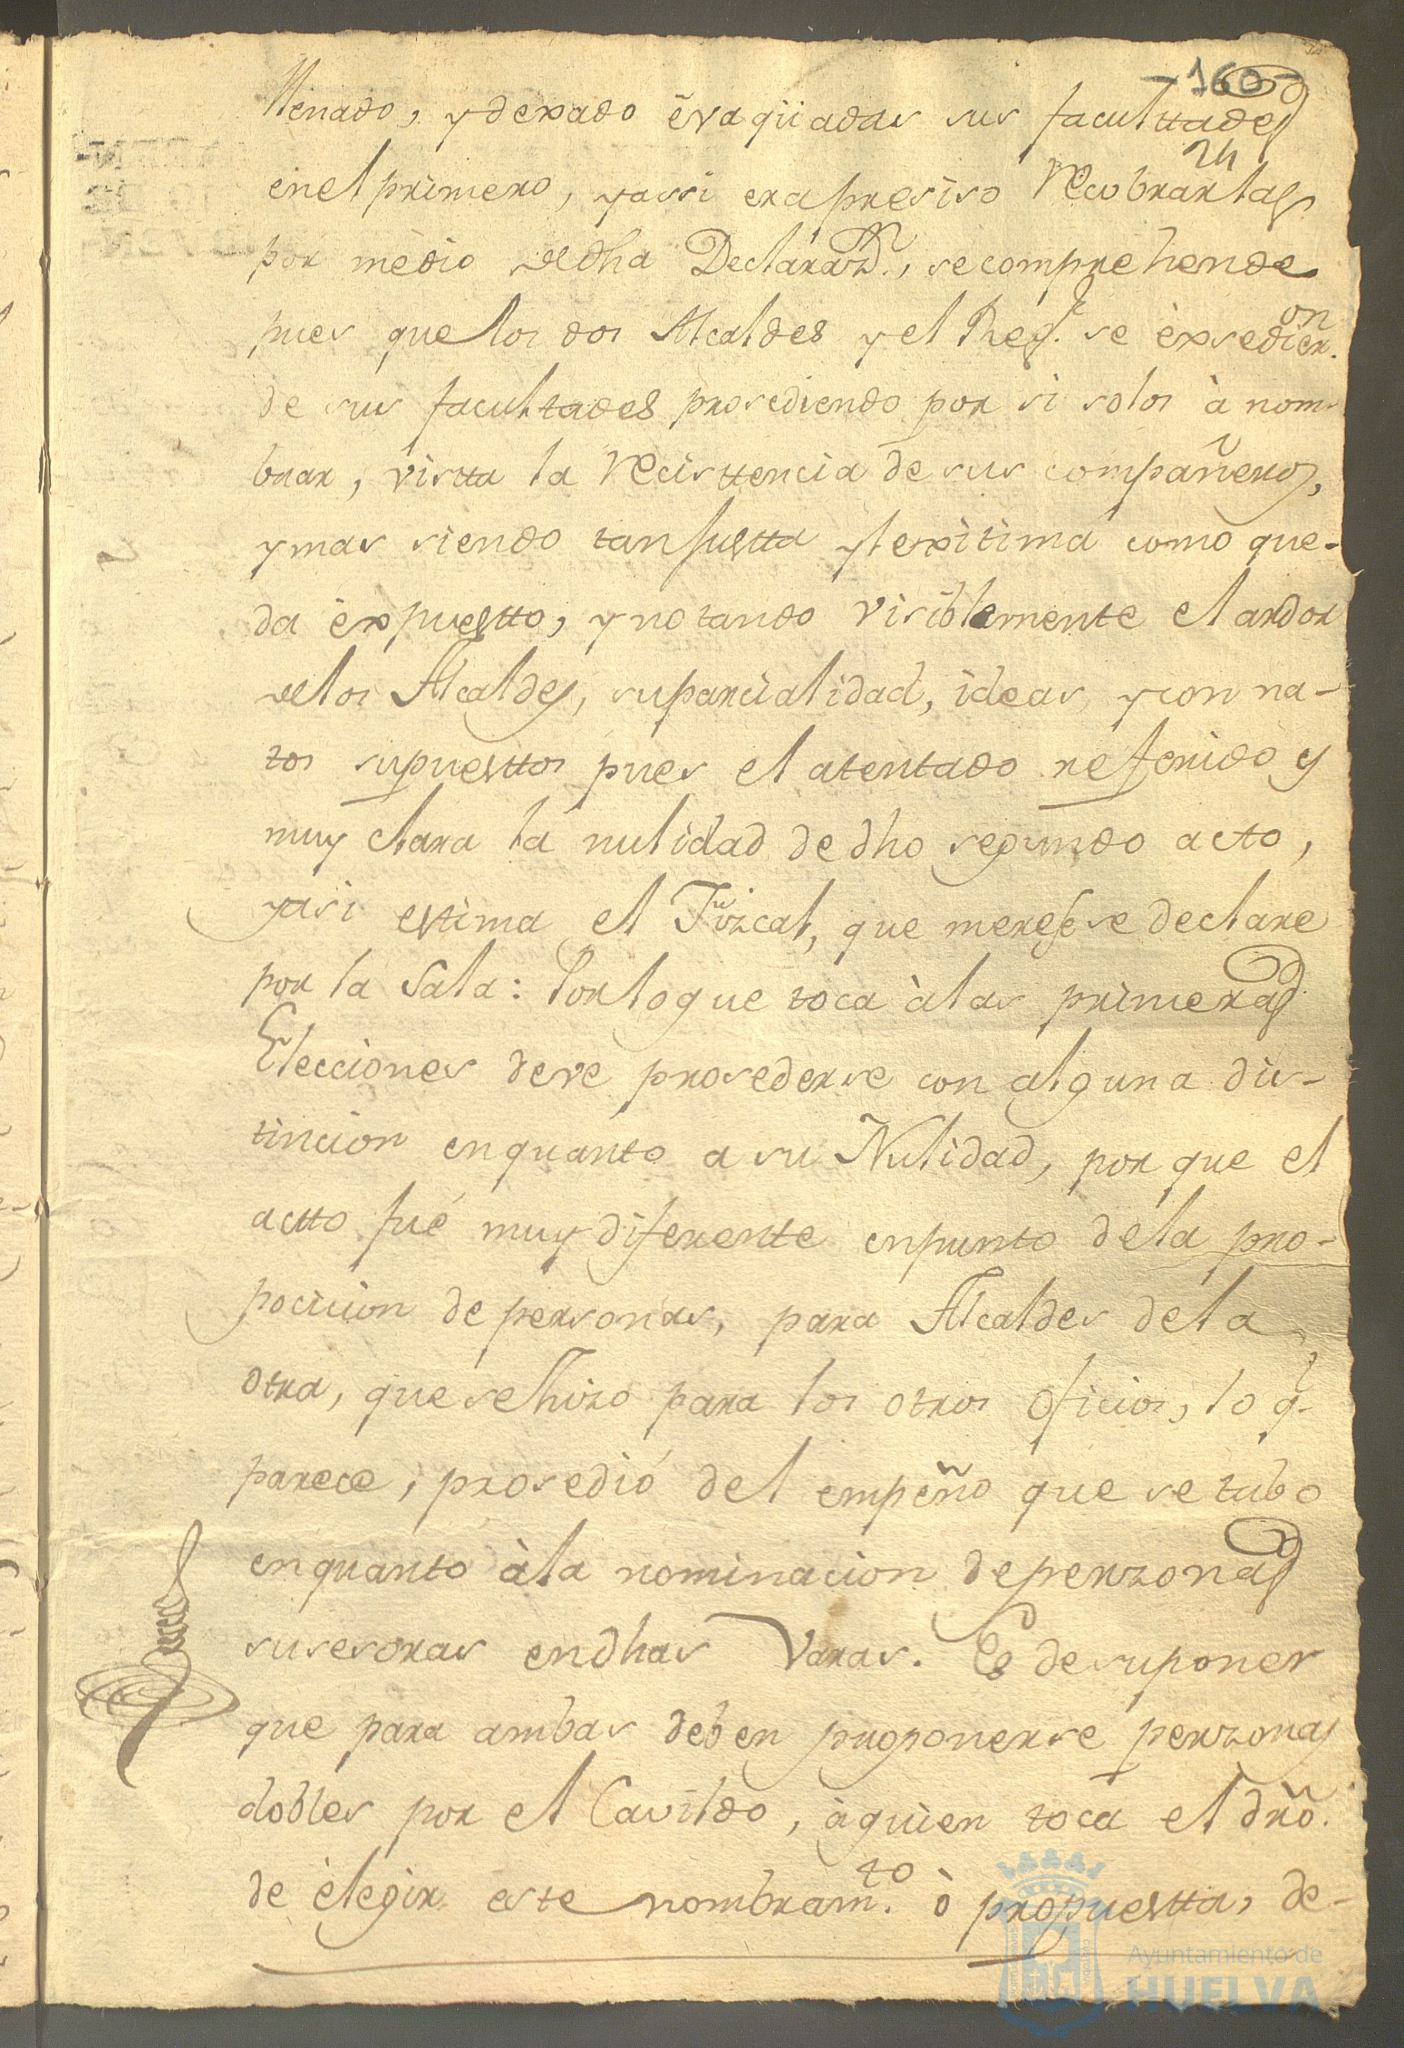 -160-
24
llenado, y dexado èvaqüadas sus faculttades
en el primero, y assi era presiso Recobrarlas
por mèdio de dha Declaraz.n, se comprehende
pues que los dos Alcaldes y el Reg.r se èxsedieron
de sus facultades prosediendo por si solos à nom-
brar, vistta la Recisttencia de sus compañeros,
y mas siendo tan justta y lexitima como que-
da èxpuestto, y notando visiblemente el ardor
de los Alcaldes, su parcialidad, ideas, y con na-
tos supuesttos pues el atentado referido es
muy clara la nulidad de dho segundo acto,
y asi estima el Fizcal, que merese se declare
por la Sala: Por lo que toca à las primeras
Elecciones deve prosederse con alguna dis-
tincion en quanto a su Nulidad, por que el
actto fué muy diferente en punto de la pro-
pocicion de personas, para Alcaldes de la
otra, que se hizo para los otros oficios, lo q.e
parece, prosedió del empeño que se tubo
en quanto à la nominacion de perzonas
susesoras en dhas Varas. Es de suponer
que para ambas deben proponerse perzonas
dobles por el Cavildo, à quien toca el dr̃o.
de èlegir este nombram.to ò propuestta, de-
Ayuntamiento de
HUELVA